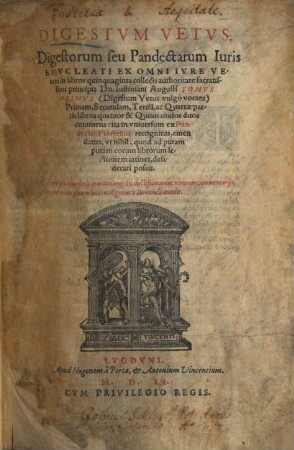 Justitia & Aequitate.
DIGESTVM VETVS.
Digestorum seu Pandectarum Iuris
ENVCLEATI EX OMNI IVRE VE-
teri in libros quinquaginta collecti authoritate sacratis-
simi principis Dn. Iustiniani Augusti TOMVS
PRIMVS (Digestum Vetus vulgò vocant)
Primam, Secundam, Tertiã, ac Quartæ par-
tis libros quatuor & Quinti titulos duos
continens: ita in vniuersum ex Pan-
dectis Florentinis recognitus, emen
datus, vt nihil, quod ad puram
putam eorum librorum le-
ctionem attinet, desi-
derari possit.
VINCENTI
LVGDVNI,
Apud Hugonem à Porta, & Antonium Vincentium.
M. D. LX.
CVM PRIVILEGIO REGIS.